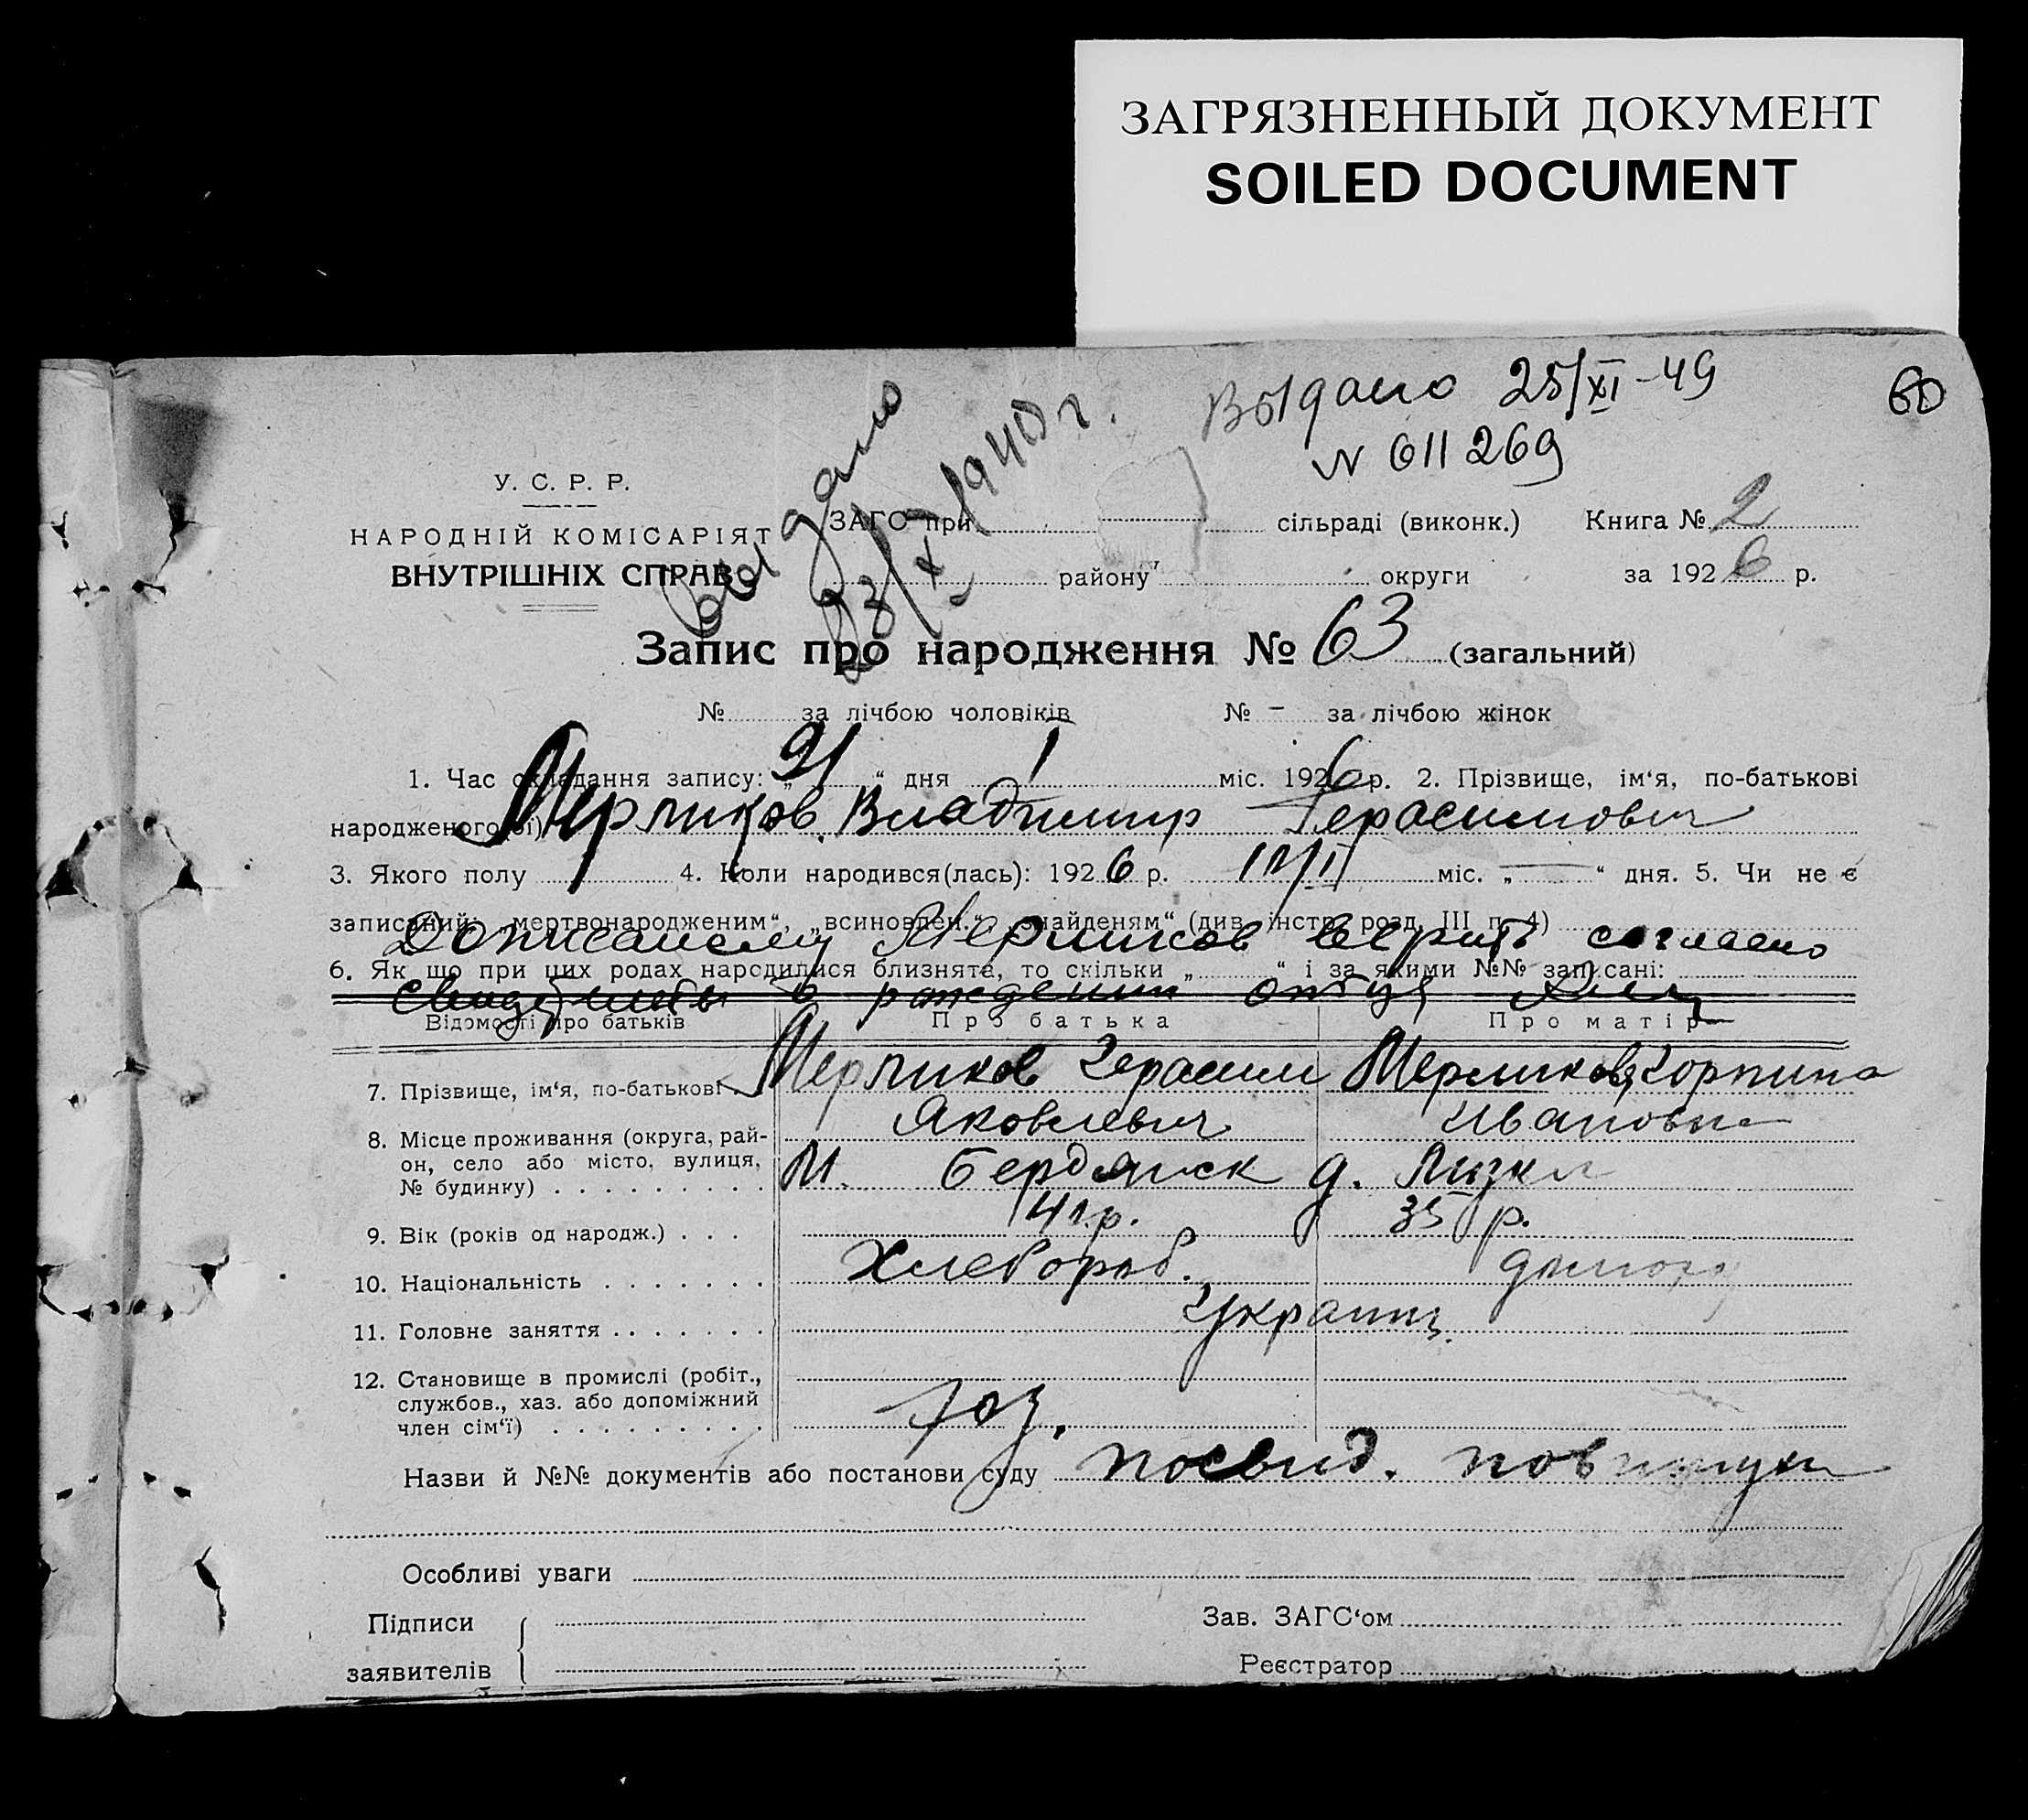 ЗАГРЯЗНЕННЫЙ ДОКУМЕНТ
SOILED DOCUMENT
Выдано 25/XI-49
№ 611269
60
выдано
23/X 1940 г.
У. С. Р. Р.
НАРОДНІЙ КОМІСАРІЯТ
ВНУТРІШНІХ СПРАВ
ЗАГС при сільраді (виконк.) Книга № 2
району округи за 1926 р.
Запис про народження № 63 (загальний)
№ за лічбою чоловіків № - за лічбою жінок
1. Час складання запису: „21“ дня I міс. 1926 р. 2. Прізвище, ім‘я, по-батькові
народженого(ої) Мерликов Владимир Герасимович
3. Якого полу 4. Коли народився(лась): 1926 р. міс. „—“ дня. 5. Чи не є
записаний: „мертвонародженим“, „всиновлен.“, „знайденям“ (див. інстр. розд. III п. 4)
Дописаному Мерликов верить согласно
6. Як що при цих родах народилися близнята, то скільки „ “ і за якими №№ записані:
о рождении отца
Відомості про батьків Про батька Про матір
7. Прізвище, ім‘я, по-батькові Мерликов Герасим Яковлевич Мерликова Горпина Ивановна
8. Місце проживання (округа, район, село або місто, вулиця, № будинку) М. Бердянск д. Лизки
9. Вік (років од народж.) 41 р. 35 р.
10. Національність Хлебороб.
11. Головне заняття Украинц.
12. Становище в промислі (робіт.,
службов., хаз. або допоміжний
член сім‘ї) хоз.
Назви й №№ документів або постанови суду посвид. повитухи
Особливі уваги
Підписи Зав. ЗАГС‘ом
заявителів Реєстратор